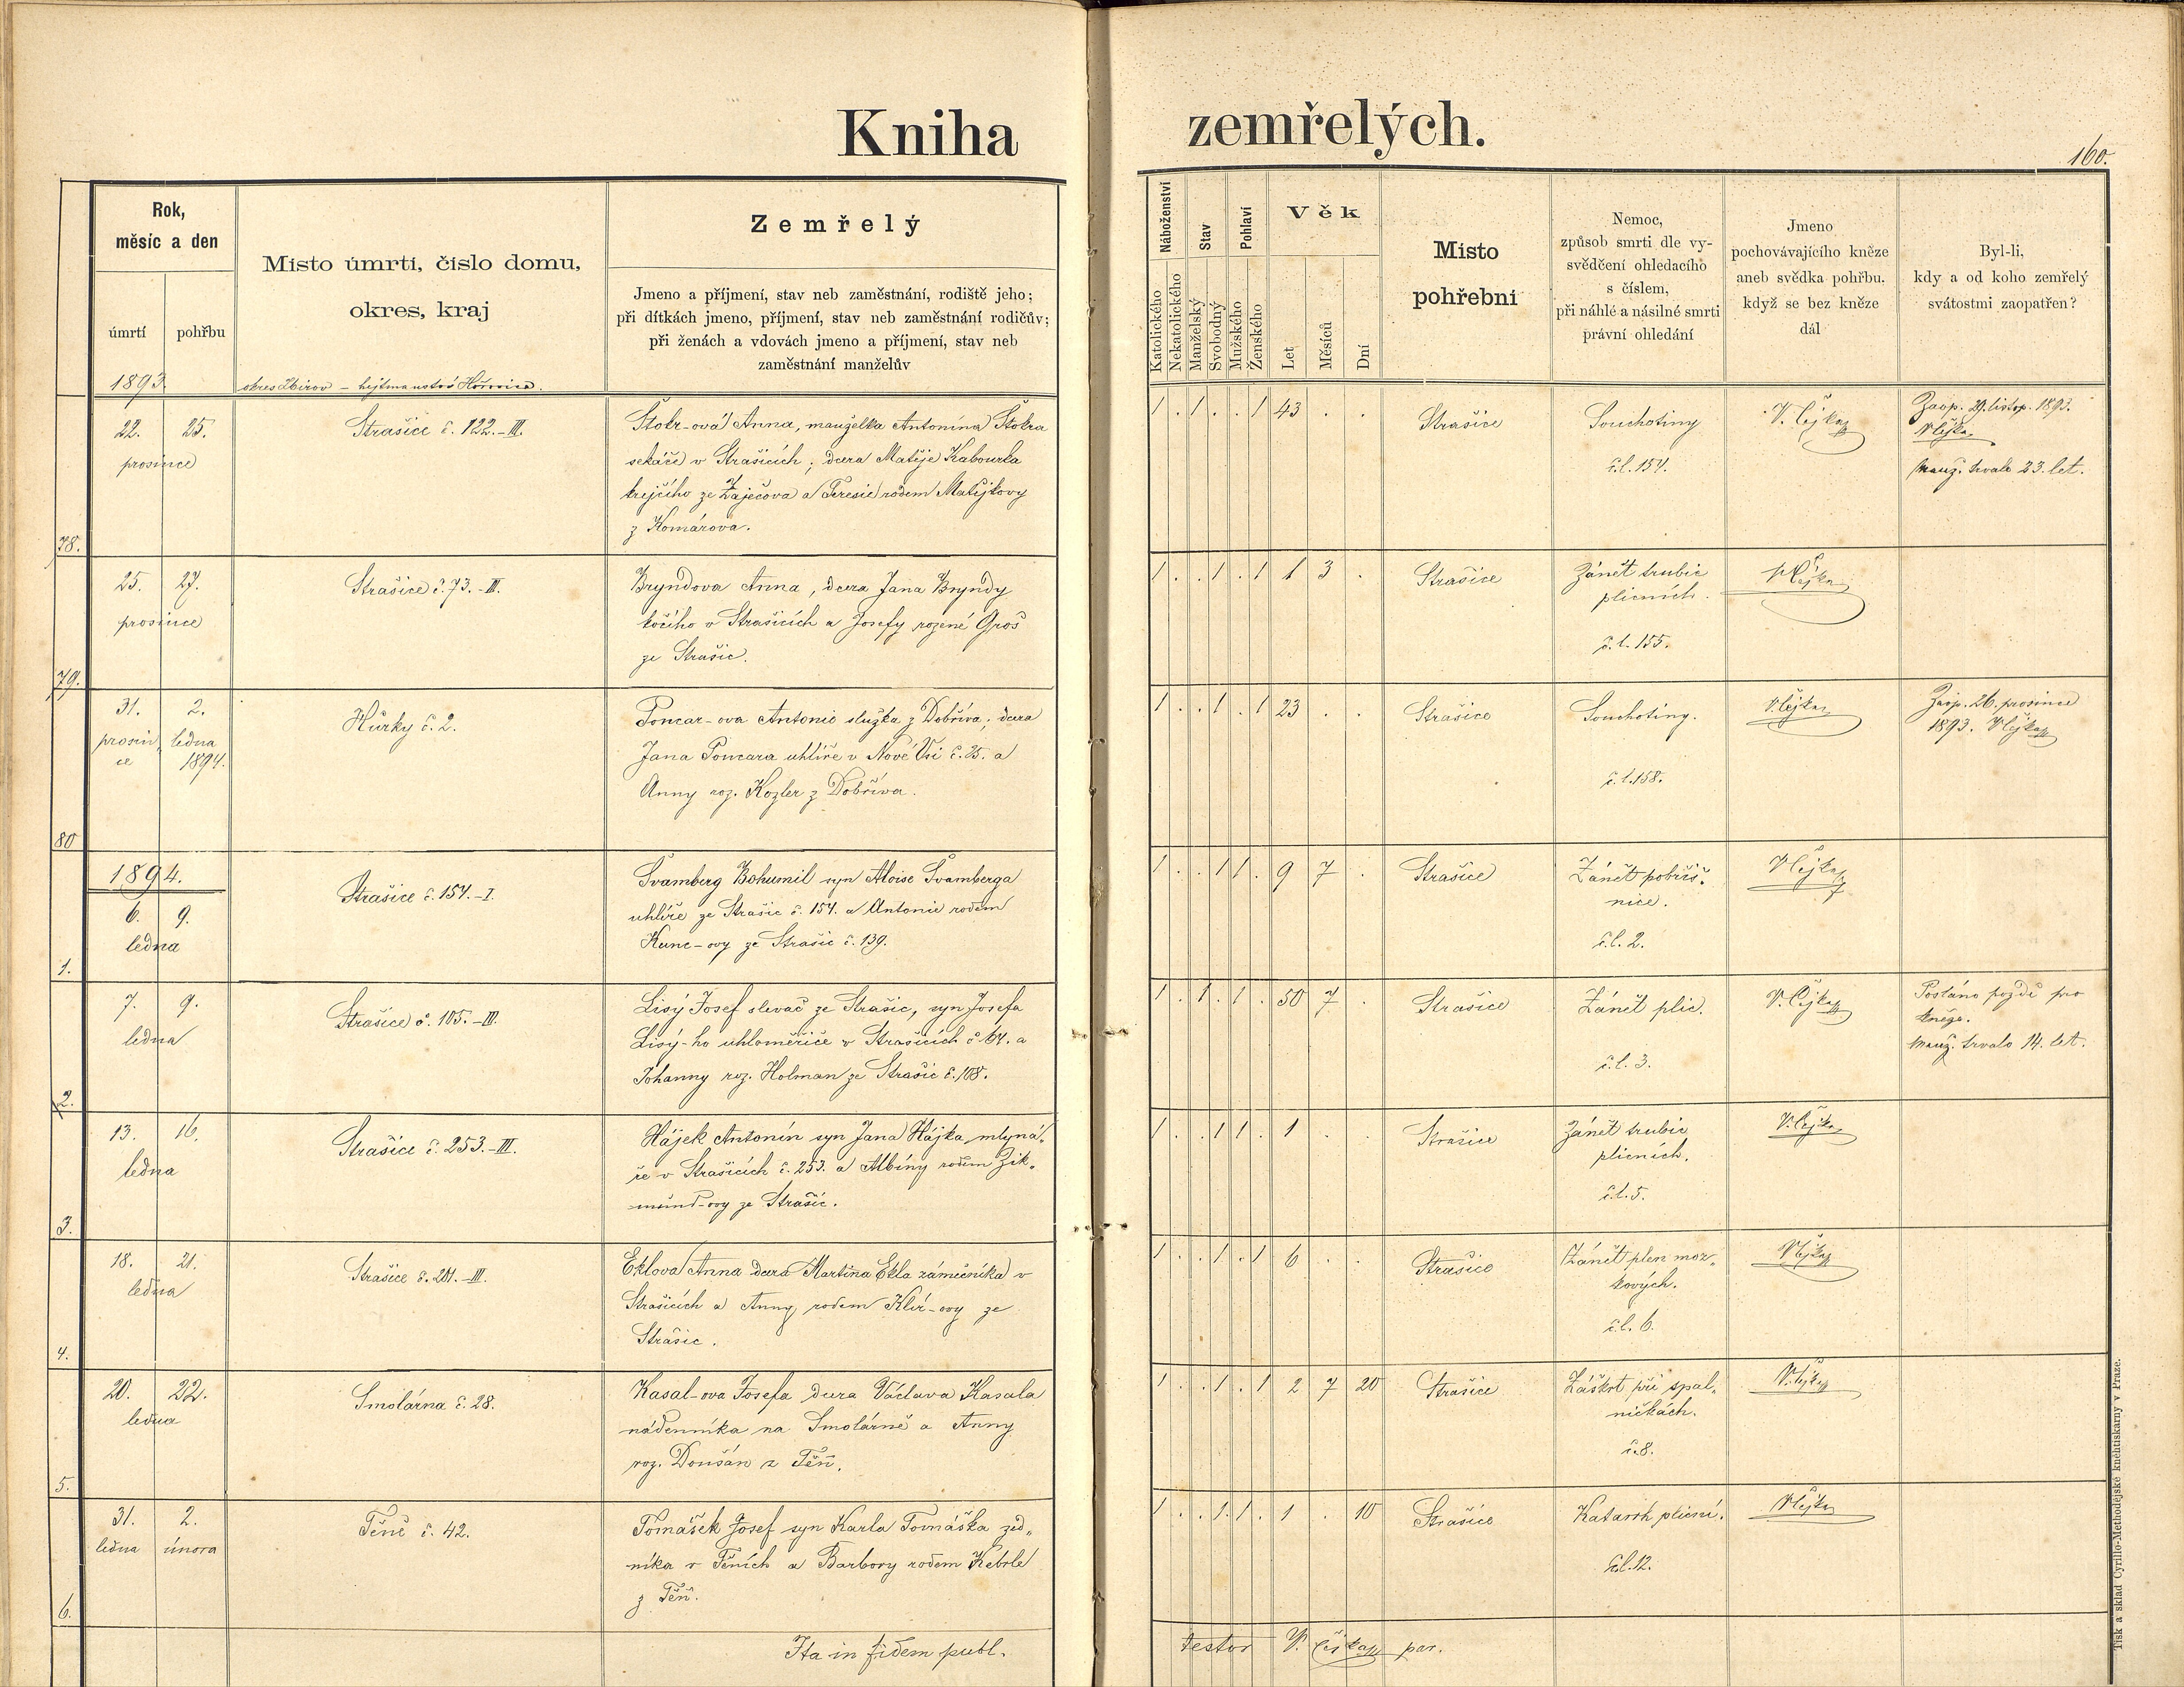 Kniha zemřelých.
160.
Rok,
měsíc a den
úmrtí
pohřbu
Místo úmrtí, číslo domu,
okres, kraj
Zemřelý
Jmeno a příjmení, stav neb zaměstnání, rodiště jeho;
při dítkách jmeno, příjmení, stav neb zaměstnání rodičův;
při ženách a vdovách jmeno a příjmení, stav neb
zaměstnání manželův
Náboženství
Katolického
Nekatolického
Stav
Manželský
Svobodný
Pohlaví
Mužského
Ženského
Věk
Let
Měsíců
Dní
Místo
pohřební
Nemoc,
způsob smrti dle vy-
svědčení ohledacího
s číslem,
při náhlé a násilné smrti
právní ohledání
Jmeno
pochovávajícího kněze
aneb svědka pohřbu.
když se bez kněze
dál
Byl-li,
kdy a od koho zemřelý
svátostmi zaopatřen?
1893
okres Zbirov – hejtmanství Hořovice.
78.
22. 25.
prosince
Strašice č. 122.-III.
Štokr-ová Anna, manželka Antonína Štokra
sekáče v Strašicích; dcera Matěje Kabourka
krejčího ze Zaječova a Teresie rodem Matějkovy
z Komárova.
1 . 1 . . 1 43 . .
Strašice
Souchotiny
č.l. 154.
V. Čejka
Zaop. 29. listop. 1893.
V Čejka
Manž. trvalo 23. let.
79.
25. 27.
prosince
Strašice č. 73.-III.
Bryndova Anna, dcera Jana Bryndy
kočího v Strašicích a Josefy rozené Groš
ze Strašic.
1 . . 1 . 1 1 3 .
Strašice
Zánět trubic
plicních.
č.l. 155.
V Čejka
80
31. 2.
prosin ledna
ce 1894.
Hůrky č. 2.
Poncar-ova Antonie služka z Dobříva; dcera
Jana Poncara uhlíře v Nové Vsi č. 25. a
Anny roz. Kozler z Dobříva.
1 . . 1 . 1 23 . .
Strašice
Souchotiny.
č.l. 158.
V Čejka
Zaop. 26. prosince
1893. V Čejka
1894.
1.
6. 9.
ledna
Strašice č. 154.-I.
Švamberg Bohumil syn Aloise Švamberga
uhlíře ze Strašic č. 154. a Antonie rodem
Kunc-ovy ze Strašic č. 139.
1 . . 1 1 . 9 7 .
Strašice
Zánět pobřiš-
nice.
č.l. 2.
V Čejka
2.
7. 9.
ledna
Strašice č. 105.-III.
Lisý Josef slevač ze Strašic, syn Josefa
Lisý-ho uhloměřiče v Strašicích č 64. a
Johanny roz. Holman ze Strašic č. 108.
1 . 1 . 1 . 50 7 .
Strašice
Zánět plic.
č.l. 3.
V. Čejka
Posláno pozdě pro
kněze.
Manž. trvalo 14. let.
3.
13. 16.
ledna
Strašice č. 253.-III.
Hájek Antonín syn Jana Hájka mlyná-
ře v Strašicích č. 253. a Albíny rodem Zik-
mund-ovy ze Strašic.
1 . . 1 1 . 1 . .
Strašice
Zánět trubic
plicních.
č.l. 5.
V. Čejka
4.
18. 21.
ledna
Strašice č. 201.-III.
Eklova Anna dcera Martina Ekla zámečníka v
Strašicích a Anny rodem Klír-ovy ze
Strašic.
1 . . 1 . 1 6 . .
Strašice
Zánět plen moz-
kových.
č.l. 6.
V Čejka
5.
20. 22.
ledna
Smolárna č. 28.
Kasal-ova Josefa dcera Václava Kasala
nádenníka na Smolárně a Anny
roz. Doušan z Těň.
1 . . 1 . 1 2 7 20
Strašice
Záškrt při spal-
ničkách.
č. 8.
V. Čejka
6.
31. 2.
ledna února
Těně č. 42.
Tomášek Josef syn Karla Tomáška zed-
níka v Těních a Barbory rodem Kebrle
z Těň.
1 . . 1 1 . 1 . 10
Strašice
Katarrh plicní.
č.l. 12.
V Čejka
Ita in fidem publ. testor V. Čejka par.
Tisk a sklad Cyrillo-Methodějské knihtiskarny v Praze.